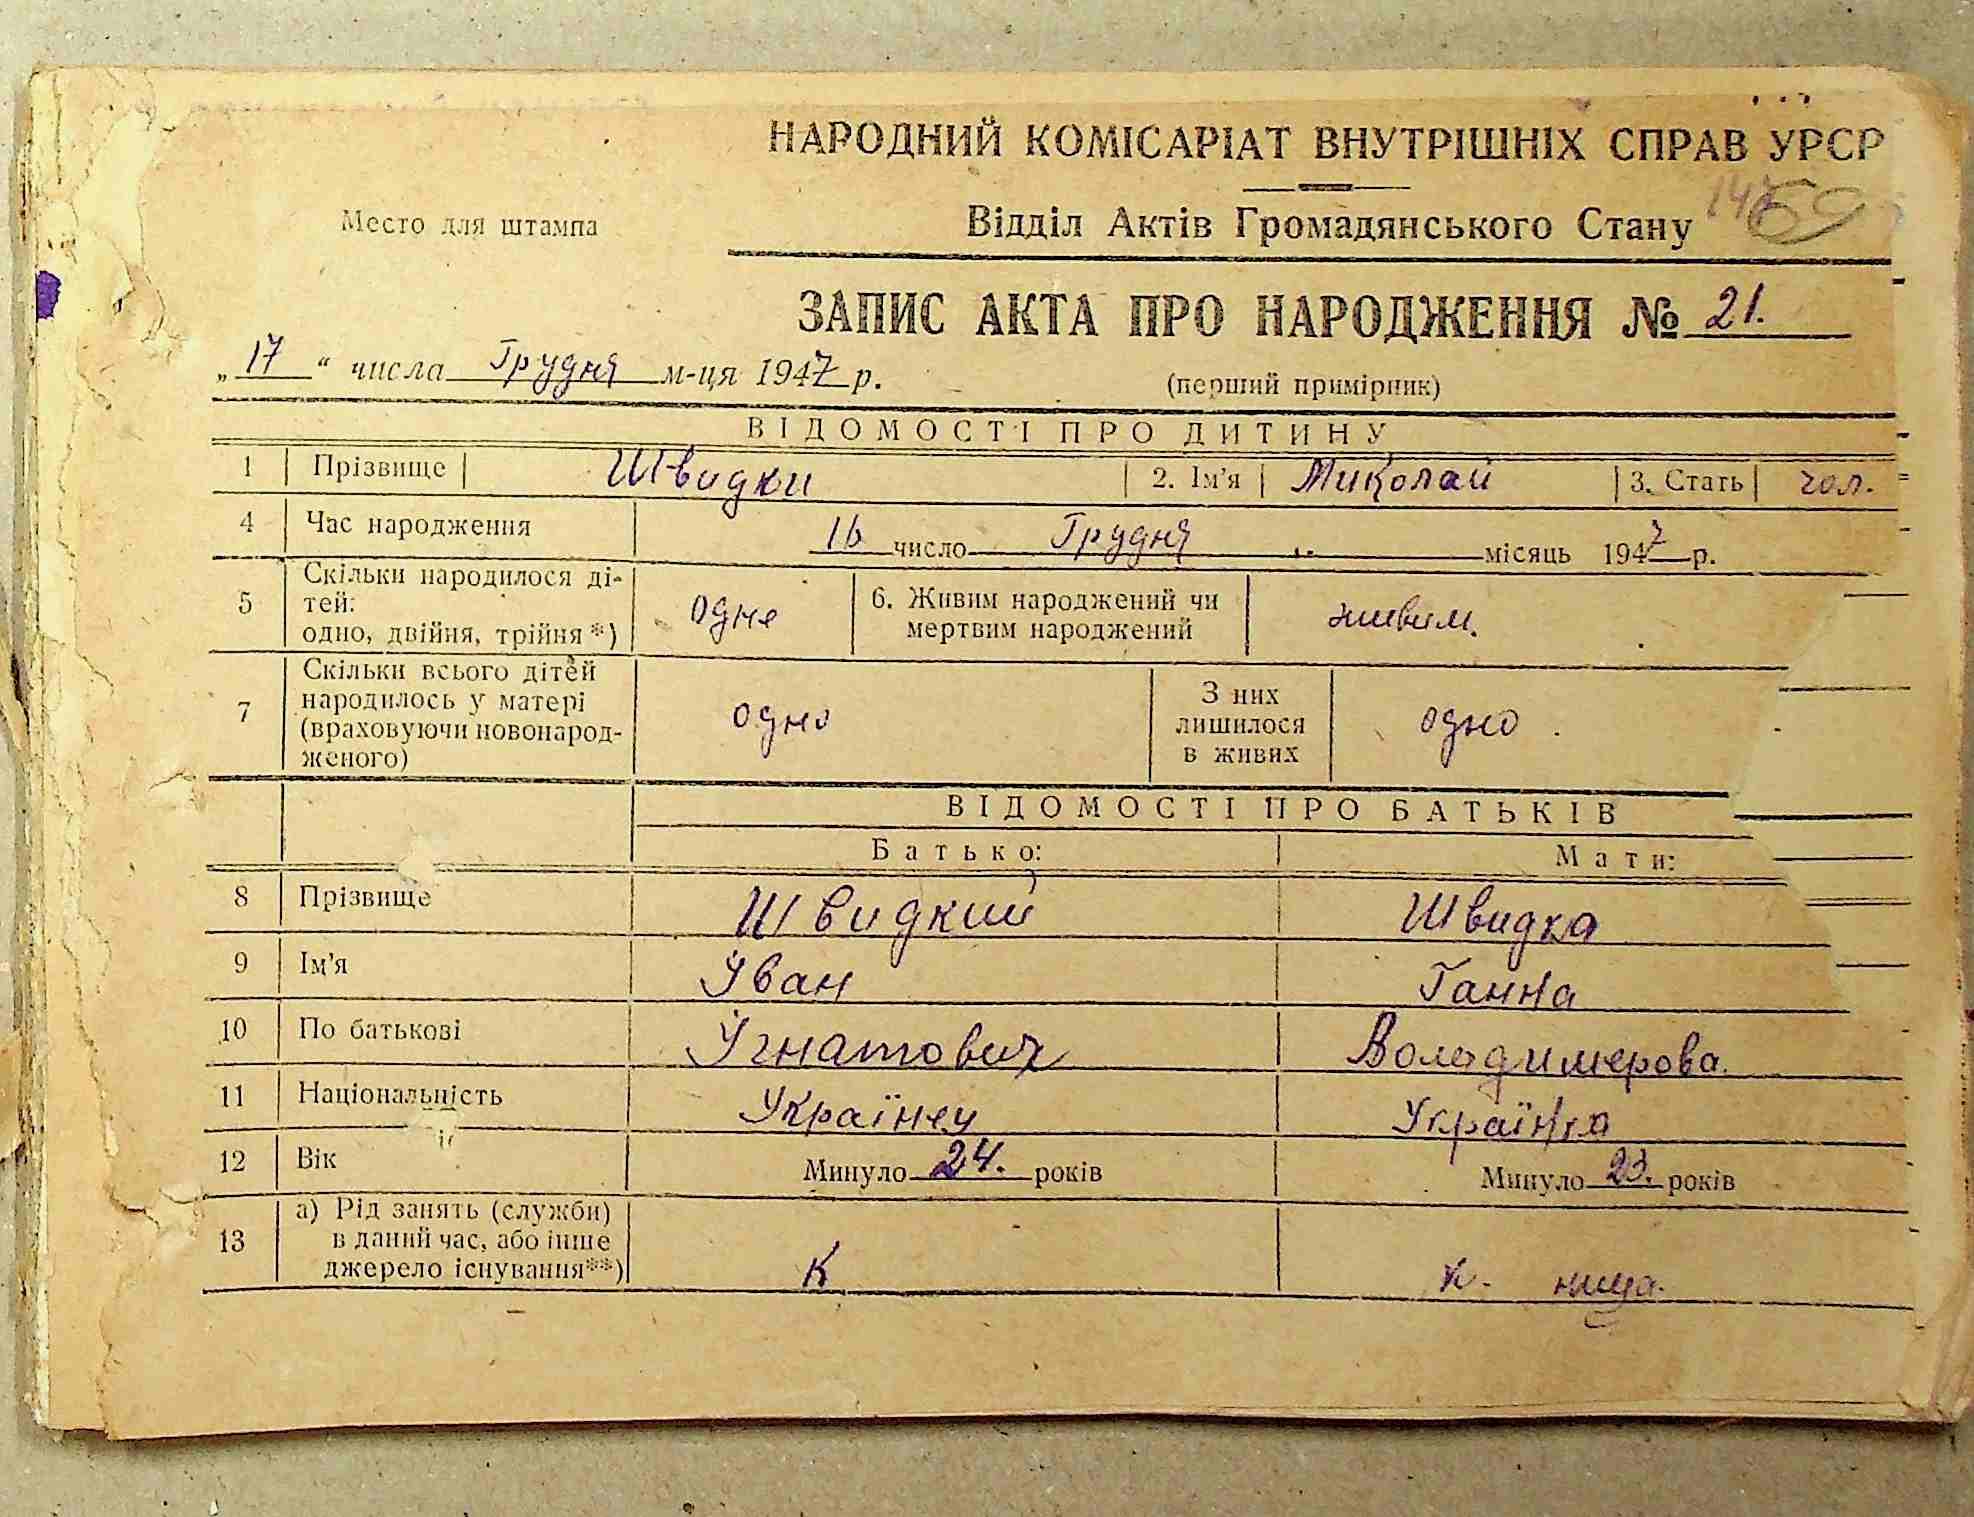 НАРОДНИЙ КОМІСАРІАТ ВНУТРІШНІХ СПРАВ УРСР
Место для штампа
Відділ Актів Громадянського Стану
ЗАПИС АКТА ПРО НАРОДЖЕННЯ № 21.
„17“ числа Грудня м-ця 1947 р.
(перший примірник)
ВІДОМОСТІ ПРО ДИТИНУ
1 Прізвище Швидки 2. Ім'я Миколай 3. Стать чол.
4 Час народження 16 число Грудня місяць 1947 р.
5 Скільки народилося ді-
тей:
одно, двійня, трійня*) одне 6. Живим народжений чи
мертвим народжений живим.
7 Скільки всього дітей
народилось у матері
(враховуючи новонарод-
женого) одно З них
лишилося
в живих одно
ВІДОМОСТІ ПРО БАТЬКІВ
Батько: Мати:
8 Прізвище Швидкий Швидка
9 Ім'я Іван Ганна
10 По батькові Ігнатович Володимерова.
11 Національність Українец Українка
12 Вік Минуло 24. років Минуло 23. років
13 а) Рід занять (служби)
в даний час, або інше
джерело існування**) К к. ница.